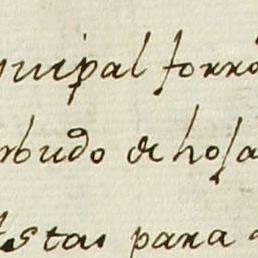 ncipal forra
rbudo de hoja
stas para